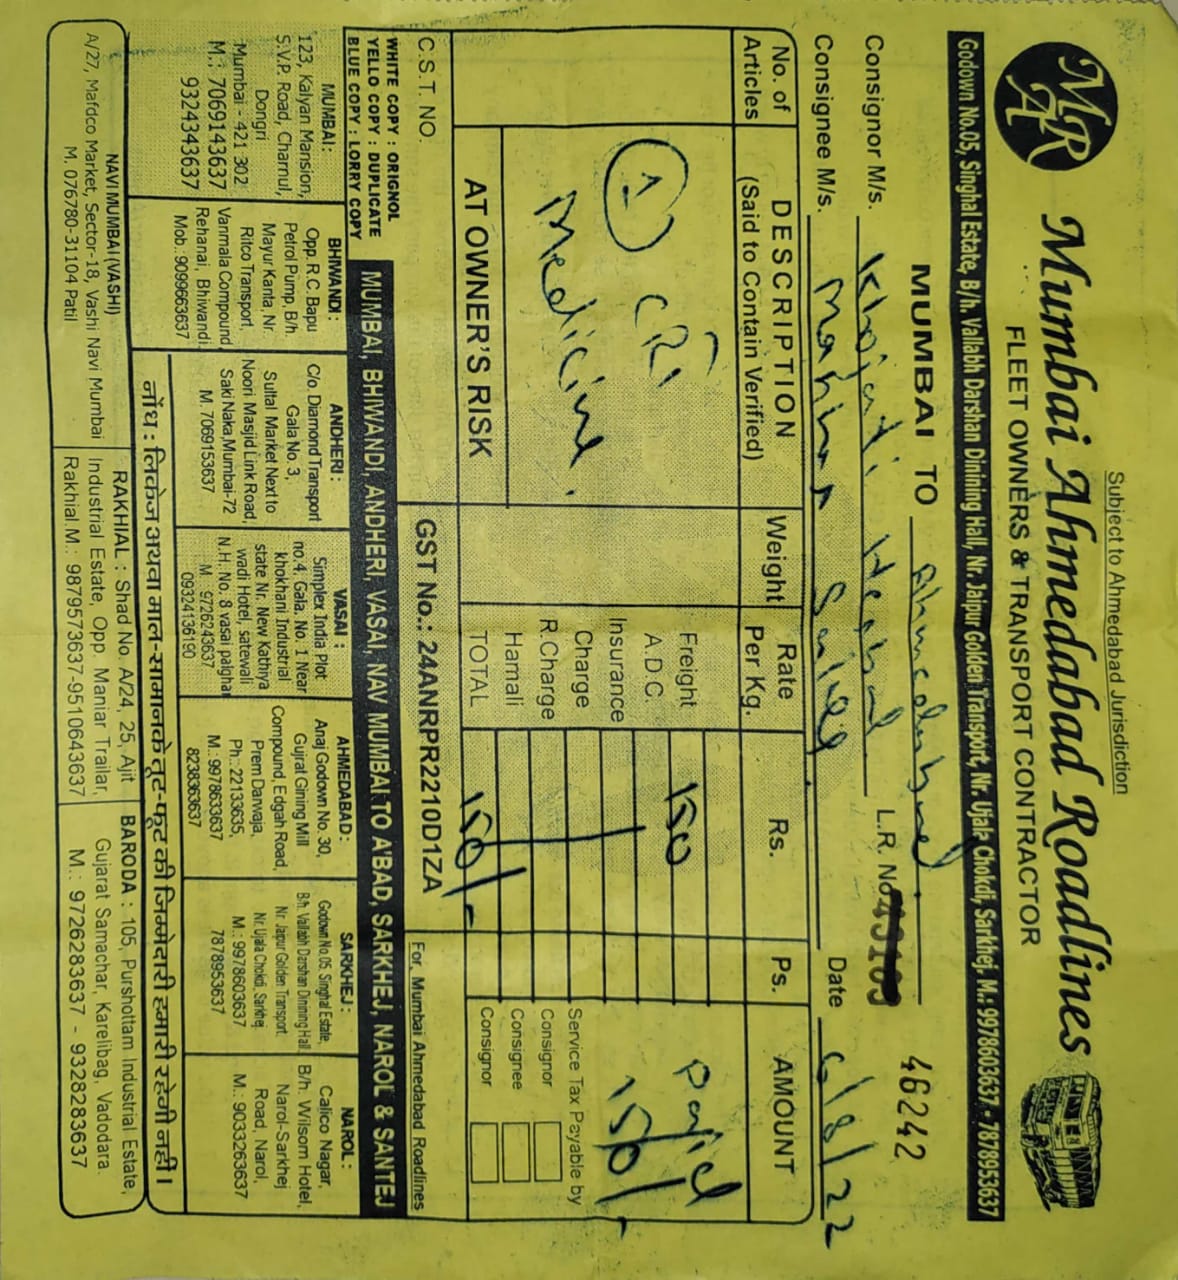 Subject to Ahmedabad Jurisdiction
MRA
Mumbai Ahmedabad Roadlines
FLEET OWNERS & TRANSPORT CONTRACTOR
Godown No.05, Singhal Estate, B/h. Vallabh Darshan Dinining Hall, Nr. Jaipur Golden Transport, Nr. Ujala Chokdi, Sarkhej. M.: 9978603637 - 7878953637
MUMBAI TO Ahmedabad.
L.R. No. 46242
Consignor M/s. Khojati Herbal
Consignee M/s. Mahima Sales
Date 6/8/22
No. of Articles
DESCRIPTION
(Said to Contain Verified)
Weight
Rate Per Kg.
Rs.
Ps.
AMOUNT
1
Medicine
Freight 150
A.D.C.
Insurance
Charge
R.Charge
Hamali
TOTAL 150/-
Paid
150/-
Service Tax Payable by
Consignor
Consignee
Consignor
AT OWNER'S RISK
C.S.T. NO.
GST No.: 24ANRPR2210D1ZA
For, Mumbai Ahmedabad Roadlines
WHITE COPY : ORIGNOL
YELLO COPY : DUPLICATE
BLUE COPY : LORRY COPY
MUMBAI, BHIWANDI, ANDHERI, VASAI, NAV MUMBAI TO A'BAD, SARKHEJ, NAROL & SANTEJ
MUMBAI:
123, Kalyan Mansion,
S.V.P. Road, Charnul,
Dongri
Mumbai - 421 302
M.: 7069143637
9324343637
BHIWANDI :
Opp. R.C. Bapu
Petrol Pump, B/h.
Mayur Kanta, Nr.
Ritco Transport,
Vanmala Compound,
Rehanai, Bhiwandi
Mob.: 9099663637
ANDHERI :
C/o. Diamond Transport
Gala No. 3,
Sultal Market Next to
Noori Masjid Link Road,
Saki Naka, Mumbai-72
M. 7069153637
VASAI :
Simplex India Plot
no.4, Gala. No. 1 Near
khokhani Industrial
state Nr. New Kathiya
wadi Hotel, satewali
N.H. No. 8 vasai palghar
M. 9726243637
09324136190
AHMEDABAD :
Anaj Godown No. 30,
Gujrat Gining Mill
Compound, Edgah Road,
Prem Darwaja,
Ph.: 22133635,
M.: 9978633637
8238363637
SARKHEJ :
Godown No.05, Singhal Estate,
B/h. Vallabh Darshan Dinining Hall,
Nr. Jaipur Golden Transport,
Nr. Ujala Chokdi, Sarkhej
M.: 9978603637
7878953637
NAROL :
Calico Nagar,
B/h. Wilsom Hotel,
Narol-Sarkhej
Road, Narol,
M.: 9033263637
नोंध : लिकेज अथवा माल-सामानके तूट-फूट की जिम्मेदारी हमारी रहेगी नहीं ।
NAVI MUMBAI (VASHI)
A/27, Mafdco Market, Sector-18, Vashi Navi Mumbai
M. 076780-31104 Patil
RAKHIAL : Shad No. A/24, 25, Ajit
Industrial Estate, Opp. Maniar Trailar,
Rakhial.M.: 9879573637-9510643637
BARODA : 105, Purshottam Industrial Estate,
Gujarat Samachar, Karelibag, Vadodara.
M.: 9726283637 - 9328283637